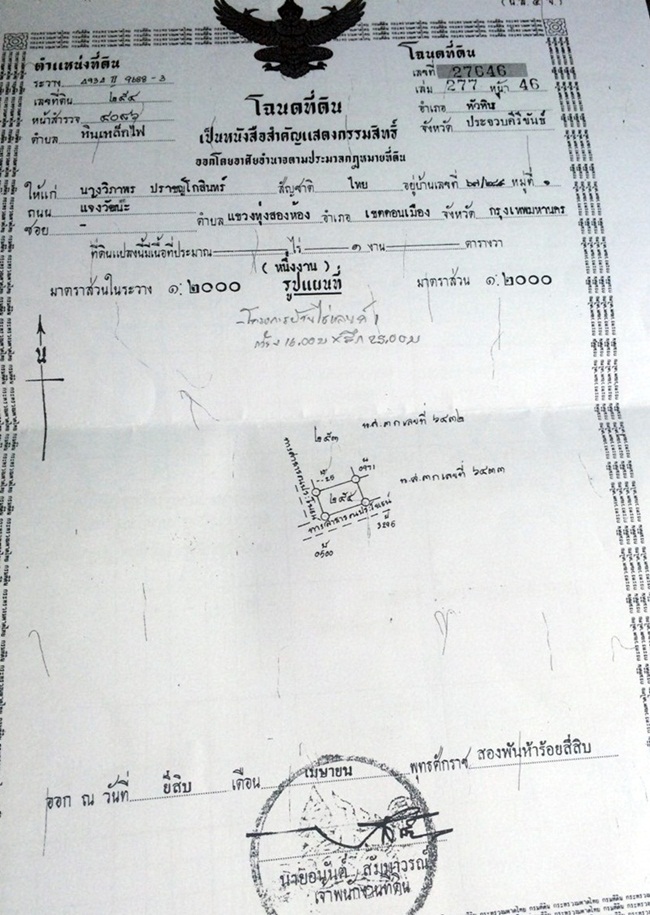 (น.ส. ๔ จ.)
ตำแหน่งที่ดิน
ระวาง
เลขที่ดิน ๒๙๔
หน้าสำรวจ ๔๐๑๖
ตำบล หินเหล็กไฟ
โฉนดที่ดิน
เลขที่ 27646
เล่ม 277 หน้า 46
อำเภอ หัวหิน
จังหวัด ประจวบคีรีขันธ์
โฉนดที่ดิน
เป็นหนังสือสำคัญแสดงกรรมสิทธิ์
ออกโดยอาศัยอำนาจตามประมวลกฎหมายที่ดิน
ให้แก่ นางวิภาพร ปราชญ์โกสินทร์ สัญชาติ ไทย อยู่บ้านเลขที่ ๖๗/๒๘๔ หมู่ที่ ๑
ถนน แจงวัฒนะ
ซอย - ตำบล แขวงทุ่งสองห้อง อำเภอ เขตดอนเมือง จังหวัด กรุงเทพมหานคร
ที่ดินแปลงนี้มีเนื้อที่ประมาณ ไร่ ๑ งาน ตารางวา
( หนึ่งงาน )
มาตราส่วนในระวาง ๑:๒๐๐๐ รูปแผนที่ มาตราส่วน ๑:๒๐๐๐
กว้าง 16.00 ม x ลึก 25.00 ม
น
๒๙๓
น.ส. ๓ ก เลขที่ ๖๔๓๒
น.ส. ๓ ก เลขที่ ๖๔๓๓
ทางสาธารณประโยชน์
๒๙๔
ทางสาธารณประโยชน์
3295
0500
ออก ณ วันที่ ยี่สิบ เดือน เมษายน พุทธศักราช สองพันห้าร้อยสี่สิบ
เจ้าพนักงานที่ดิน